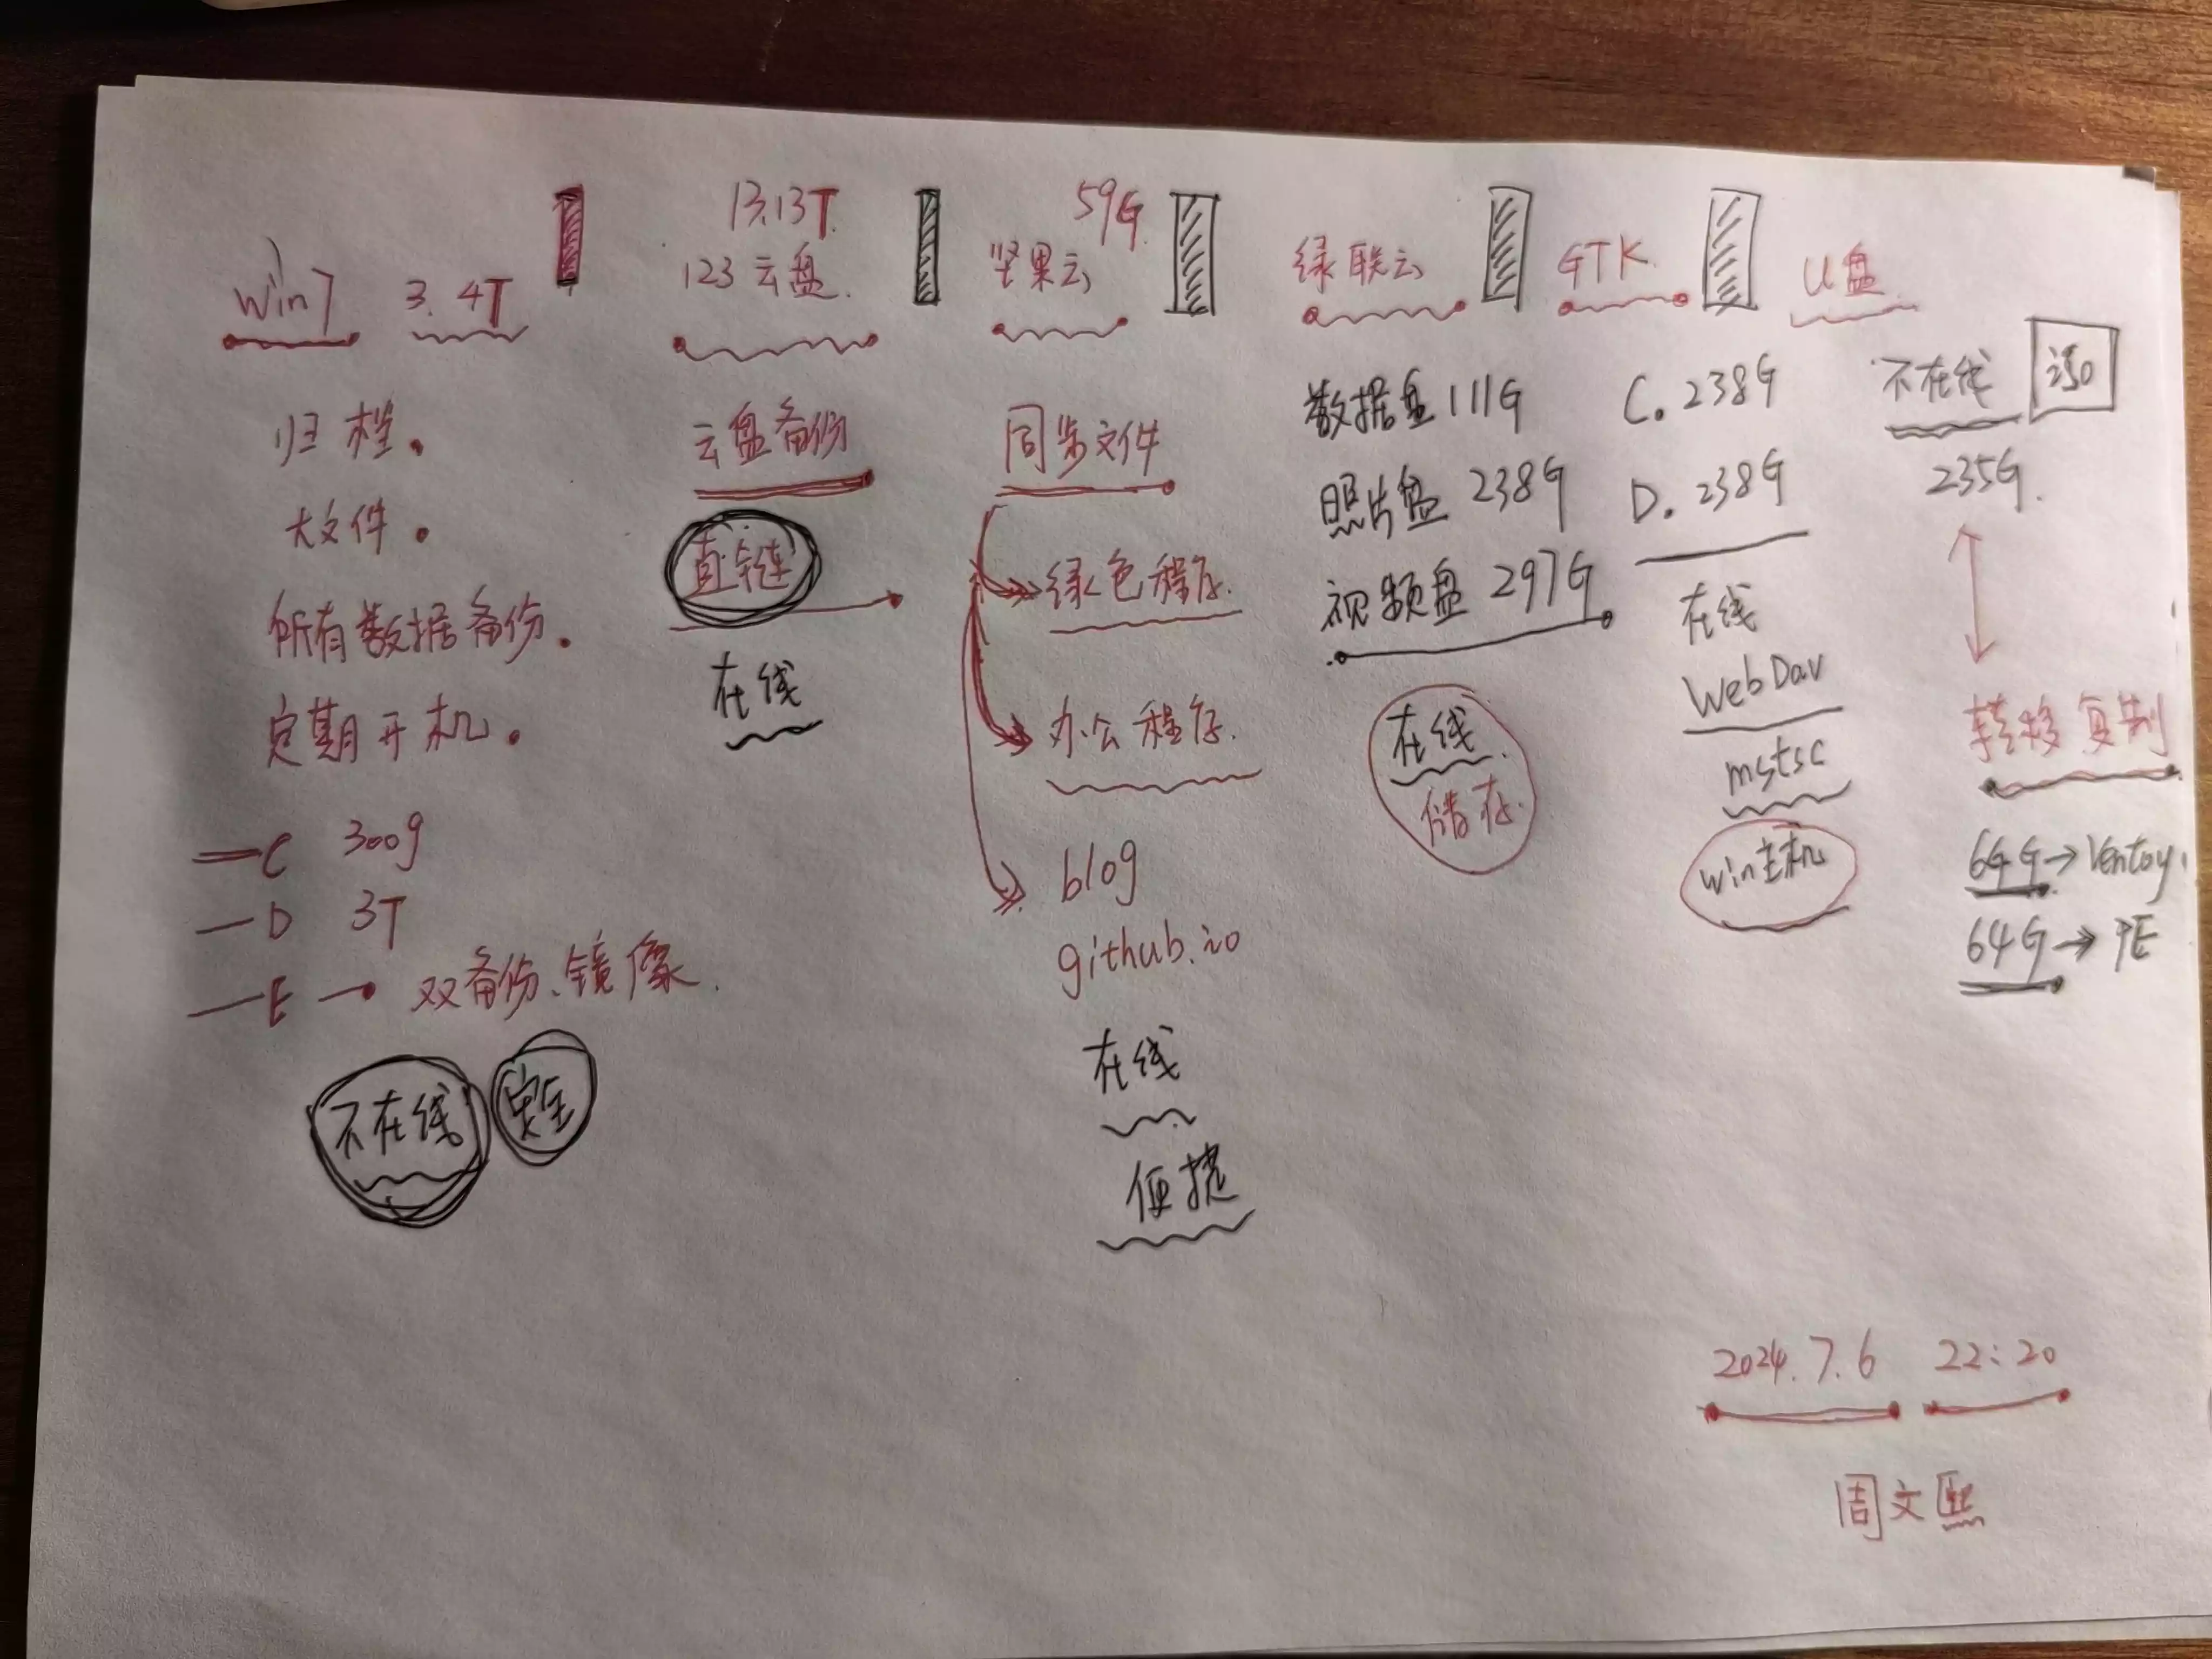 Win7 3.4T
归档。
大文件。
所有数据备份.
定期开机.
C 300g
D 3T
E 双备份、镜像.
不在线 安全
13.13T
123云盘.
云盘备份
直链
在线
59G
坚果云
同步文件
绿色程序.
办公程序.
blog
github.io
在线
便捷
绿联云
数据盘 111G
照片盘 238G
视频盘 297G
在线
储存
GTK
C. 238G
D. 238G
在线
WebDav
mstsc
win主机
U盘
不在线
235G.
转移复制
64G→Ventoy
64G→PE
2024.7.6 22:20
周文熙